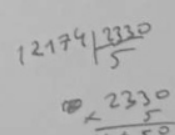 12174 2330
5
2330
× 5